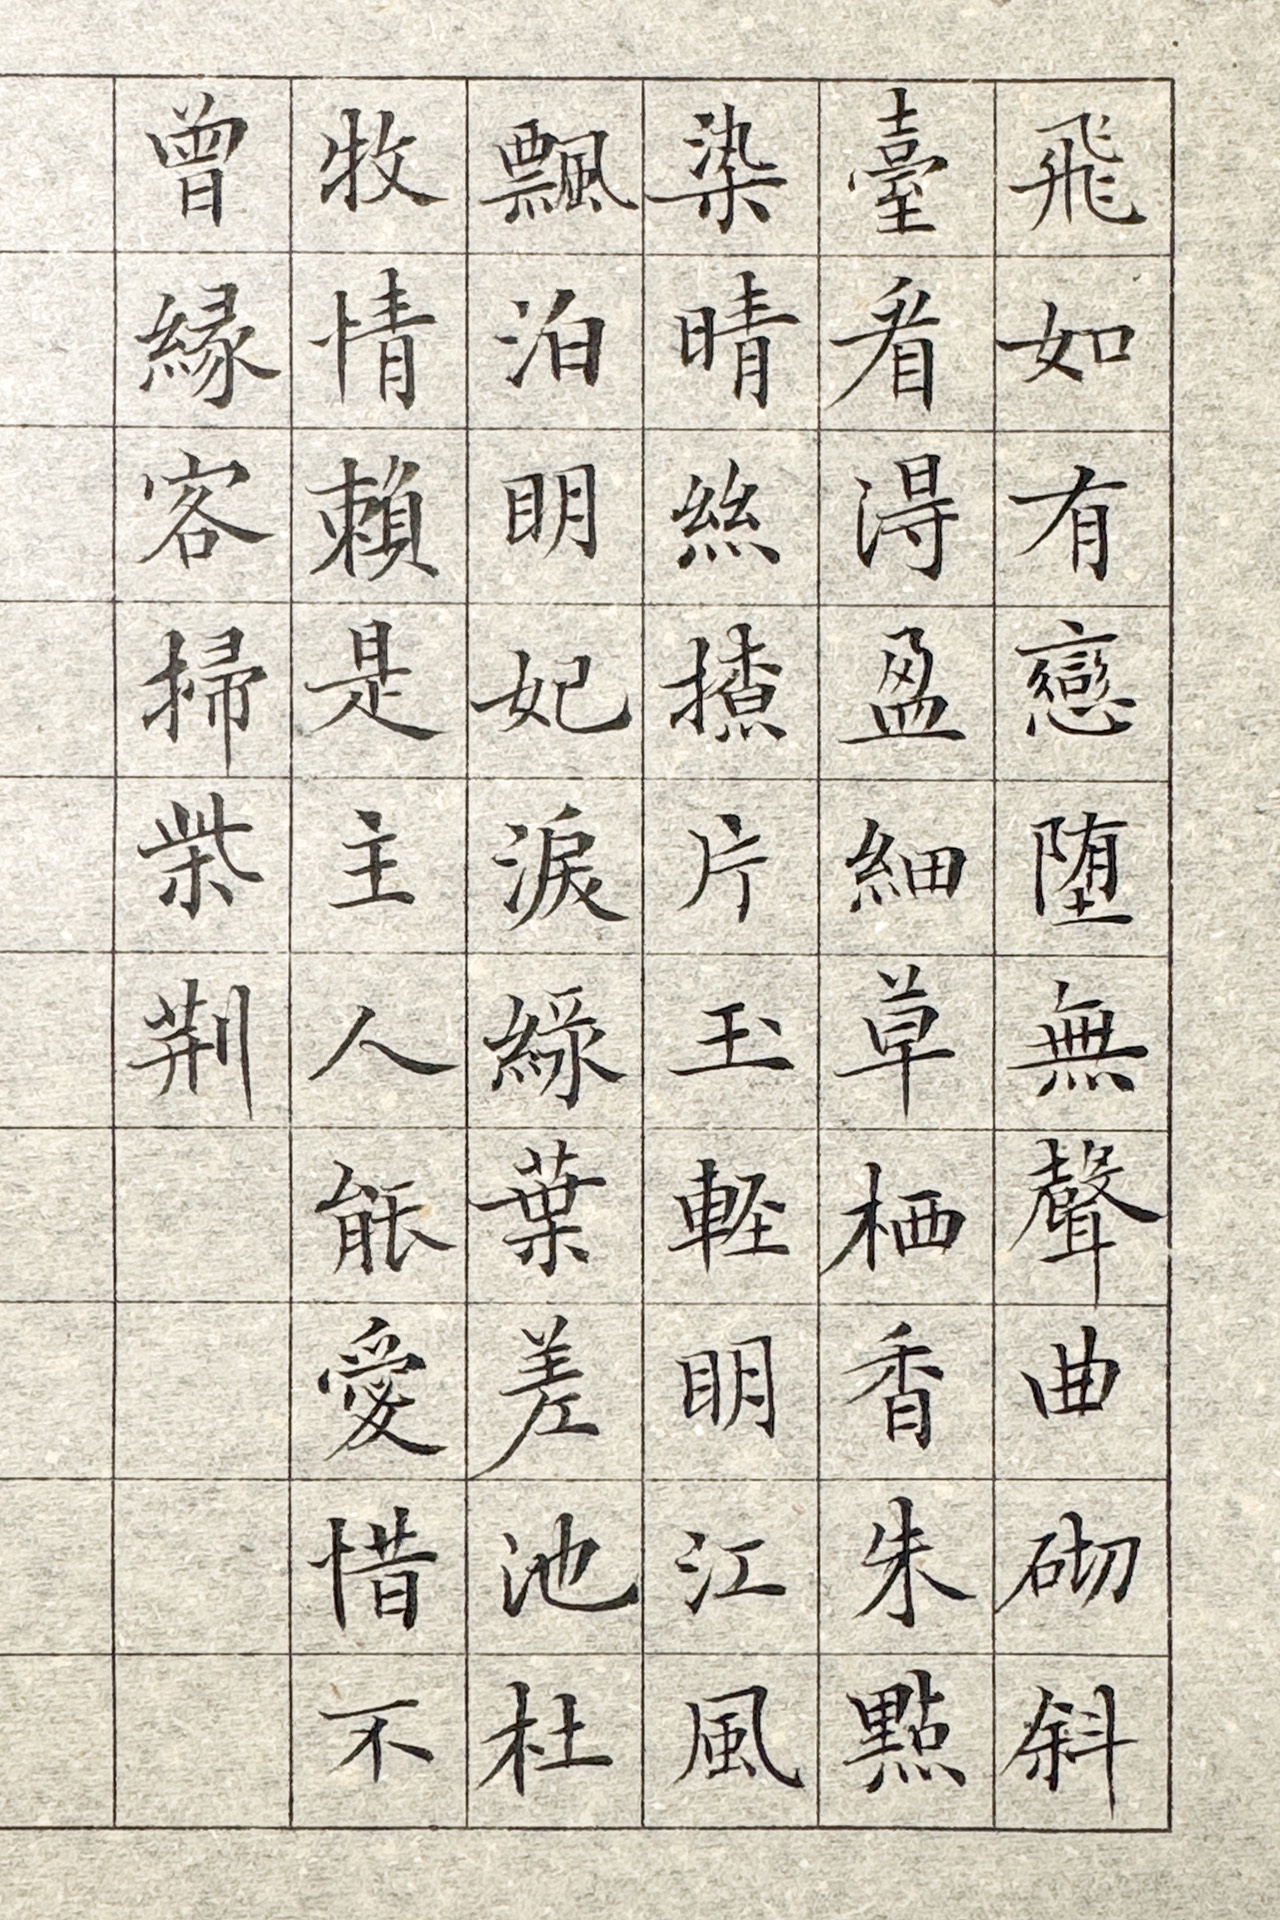 飛如有戀堕無聲曲砌斜
臺看淂盈細草栖香朱點
染晴絲撩片玉軽明江風
飄泊明妃淚綠葉差池杜
牧情賴是主人能愛惜不
曾緣客掃柴荆